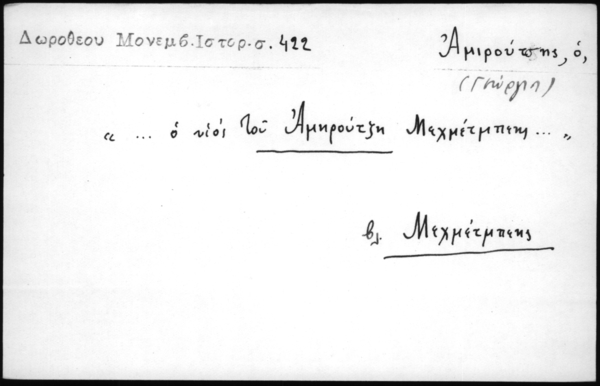 Δωροθεου Μονεμβ.Ιστορ.σ. 422
Ἀμιρούτσης, ὁ,
(Γιώργη)
« ... ὁ υἱός τοῦ Ἀμηρούτζη Μεχμέτμπεης ... »
βλ. Μεχμέτμπεης